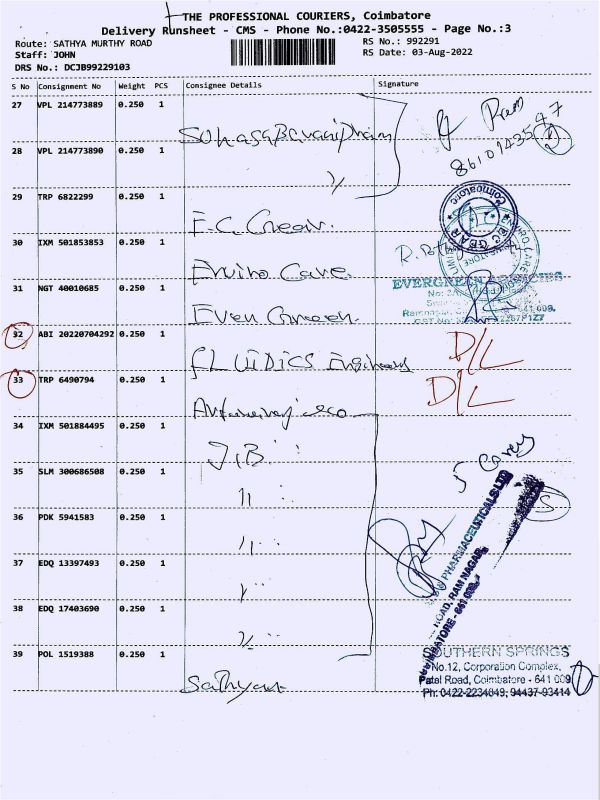 THE PROFESSIONAL COURIERS, Coimbatore
Delivery Runsheet - CMS - Phone No.:0422-3505555 - Page No.:3
Route: SATHYA MURTHY ROAD
RS No.: 992291
Staff: JOHN
RS Date: 03-Aug-2022
DRS No.: DCJB99229103
S No Consignment No Weight PCS Consignee Details Signature
27 VPL 214773889 0.250 1
28 VPL 214773890 0.250 1
Ram
29 TRP 6822299 0.250 1
Coimbatore
EC GEAR
30 IXM 501853853 0.250 1
Enviro Care
EVERGREEN AGENCIES
31 NGT 40010685 0.250 1
Ever Green
32 ABI 20220704292 0.250 1
D/L
FLUIDICS Engineers
33 TRP 6490794 0.250 1
D/L
34 IXM 501884495 0.250 1
J.B.
35 SLM 300686508 0.250 1
"
36 PDK 5941583 0.250 1
"
37 EDQ 13397493 0.250 1
PHARMACEUTICALS LTD
ROAD, RAM NAGAR
COIMBATORE - 641 009.
38 EDQ 17403690 0.250 1
39 POL 1519388 0.250 1
Sathyan
SOUTHERN SPRINGS
No.12, Corporation Complex,
Patal Road, Coimbatore - 641 009
Ph: 0422-2234049, 94437-93414